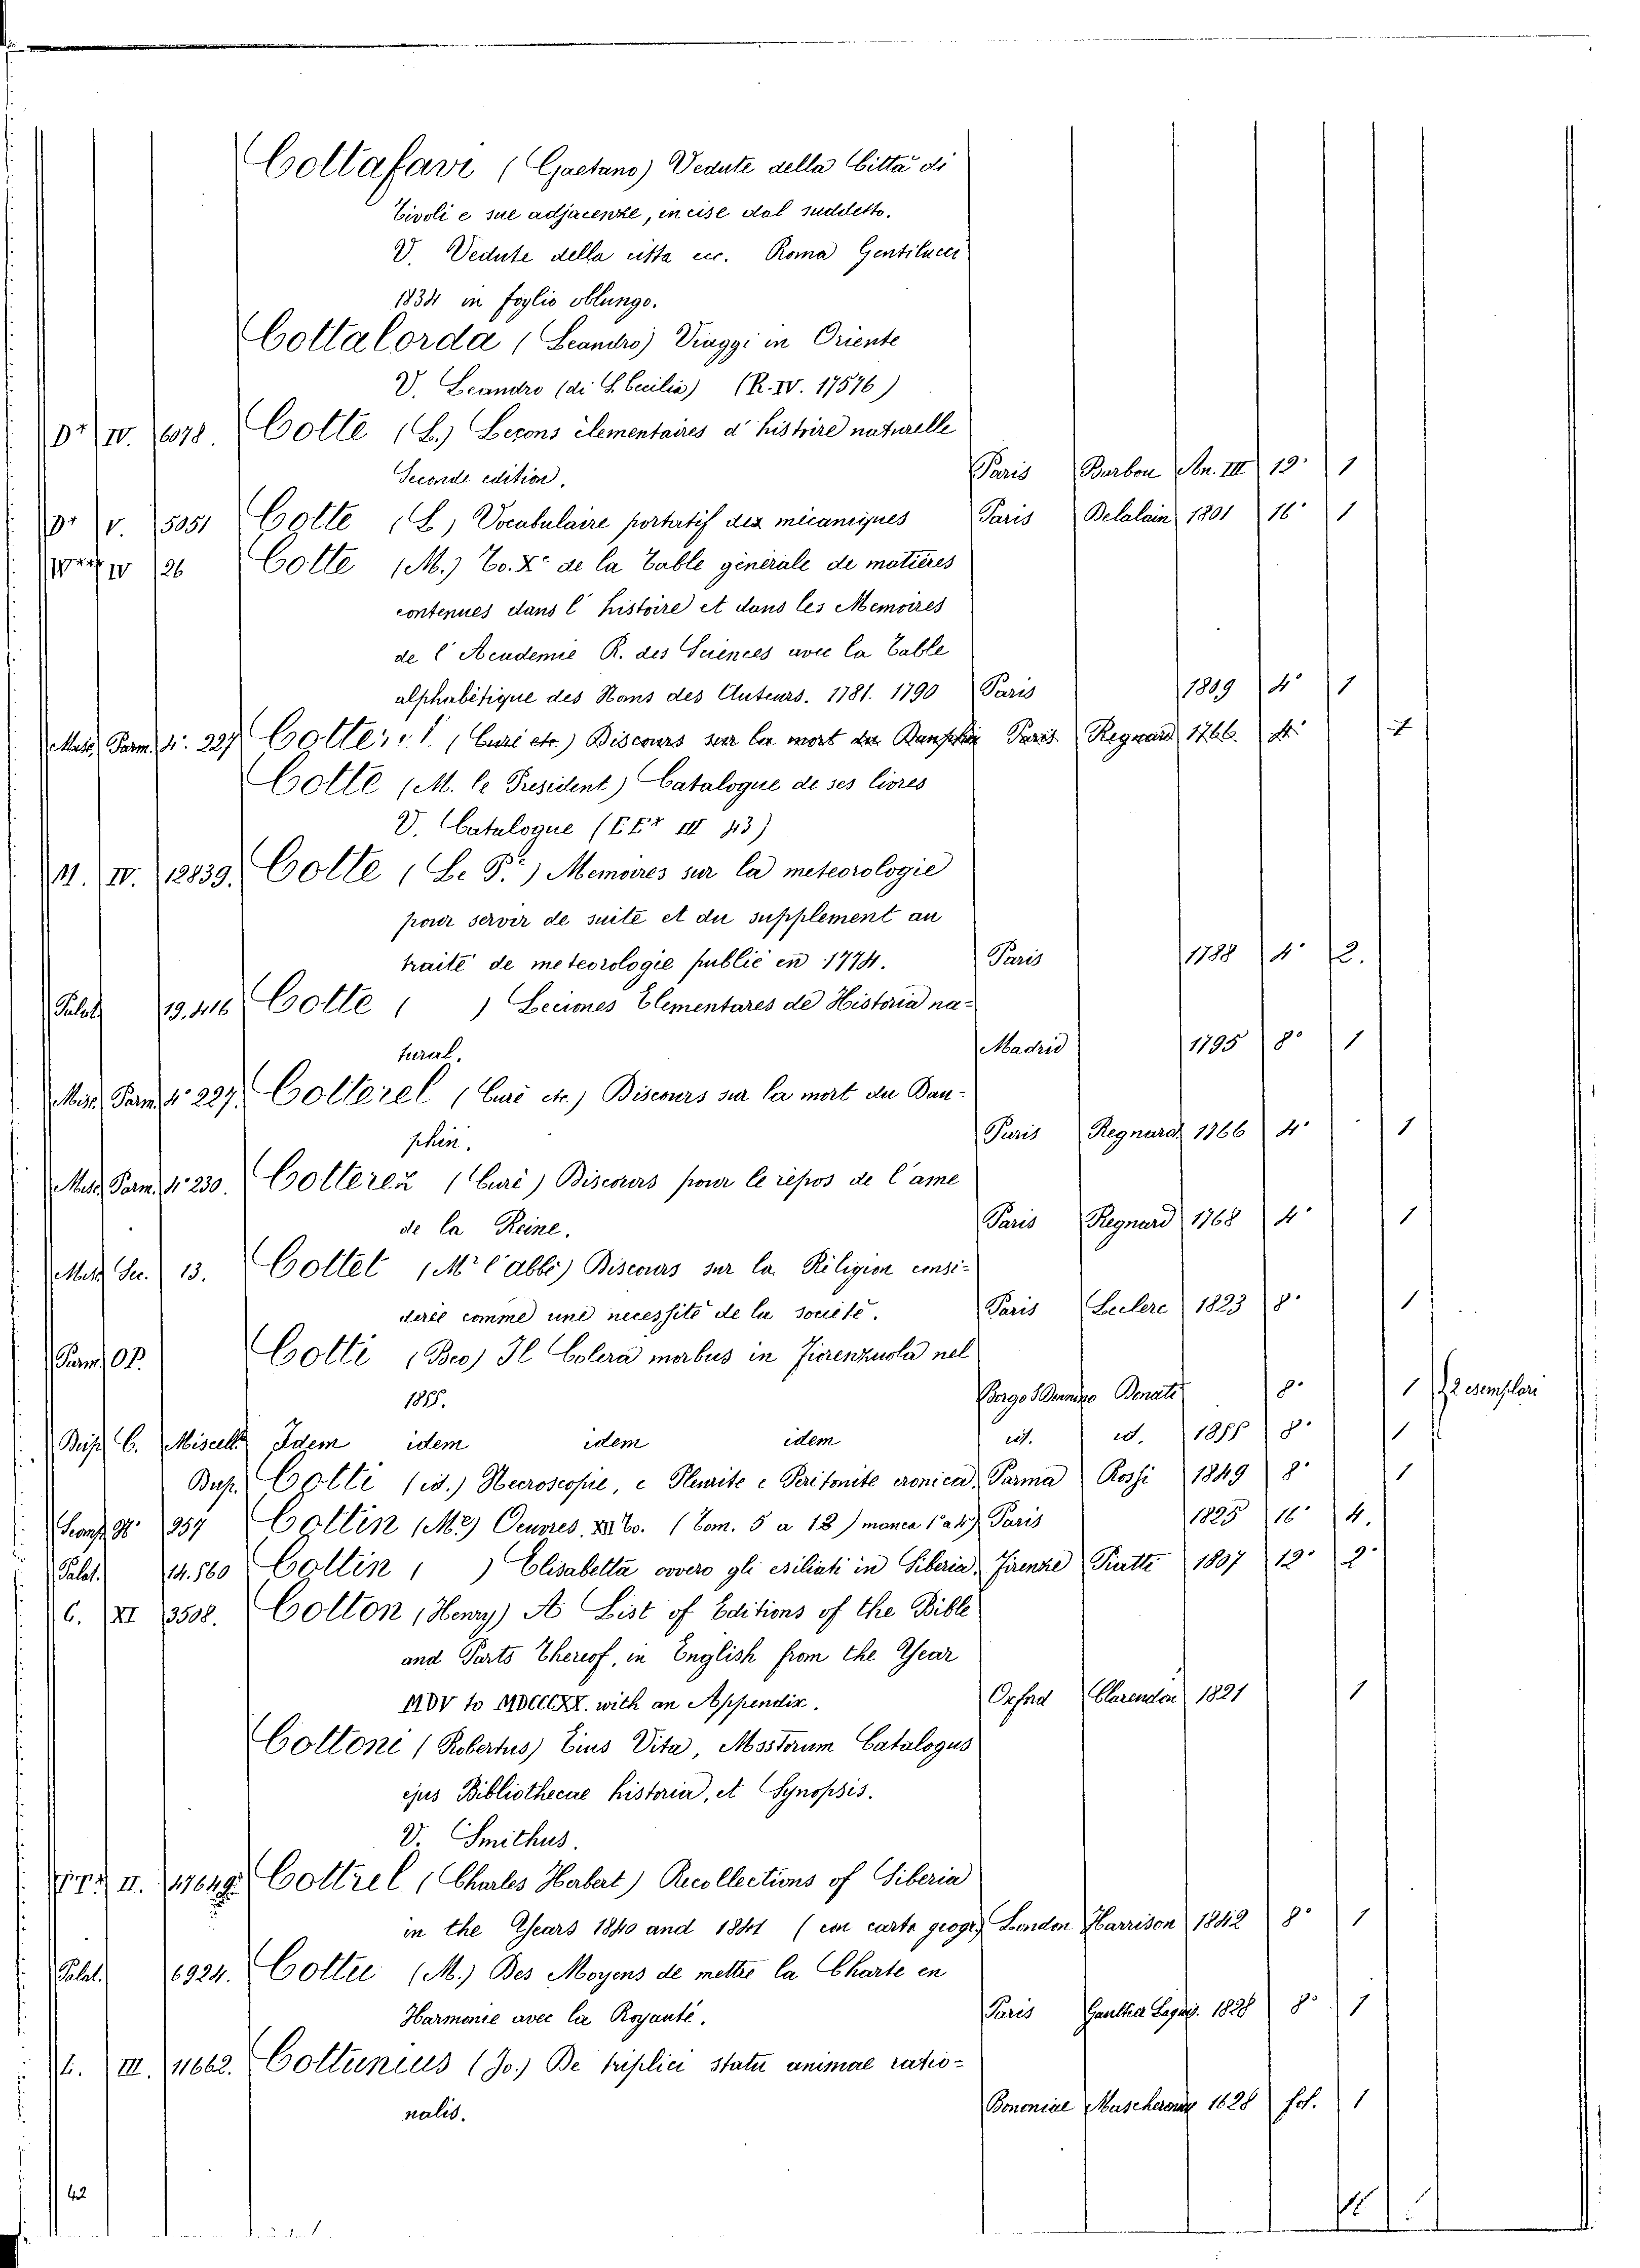 Cottafavi (Gaetano) Vedute della Città di
Tivoli e sue adjacenze, incise dal suddetto.
V. Vedute della citta ecc. Roma Gentilucci
1834 in foglio oblungo.
Cottalorda (Leandro) Viaggi in Oriente
V. Leandro (di S. Cecilia) (R. IV. 17576)
IV. 6078. Cotte (L.) Leçons élementaires d'histoire naturelle
Seconde edition. Paris Barbou An. III 12° 1
V. 5051 Cotte (L.) Vocabulaire portatif des mécaniques Paris Delalain 1801 16° 1
IV 26 Cotte (M.) To. X° de la Table générale de matières
contenues dans l'histoire et dans les Memoires
de l'Academie R. des Sciences avec la Table
alphabétique des Noms des Auteurs. 1781. 1790 Paris 1809 4° 1
Misc. Parm. 4°. 227 Cotterel (Curé etc.) Discours sur la mort du Dauphin Paris. Regnard 1766. 4° 1
Cotte (M. le President) Catalogue de ses livres
V. Catalogue (III 43)
M. IV. 12839. Cotte (Le P.e) Memoires sur la meteorologie
pour servir de suite et du supplement au
traité de meteorologie publié en 1774. Paris 1788 4° 2.
Palat. 19.416 Cotte ( ) Leciones Elementares de Historia na-
tural. Madrid 1795 8° 1
Misc. Parm. 4° 227. Cotterel (Curé etc.) Discours sur la mort du Dau-
phin. Paris Regnard 1766 4° 1
Misc. Parm. 4° 230. Cotterez (Curé) Discours pour le répos de l'ame
de la Reine. Paris Regnard 1768 4° 1
Misc. Sec. 13. Cottet (Mr l'abbé) Discours sur la Réligion consi-
derée comme une necessité de la société. Paris Leclerc 1823 8° 1
Parm. OP. Cotti (Beo) Il Colera morbus in Fiorenzuola nel
1855. Borgo S Donnino Donati 8° 1 2 esemplari
Busp. C. Miscell. Idem idem idem idem id. id. 1855 8° 1
Busp. Cotti (id.) Necroscopie, e Pleurite e Peritonite cronica. Parma Rossi 1849 8° 1
957 Cottin (Me) Oeuvres, XII To. (Tom. 5 a 12) manca 1° a 4°) Paris 1825 16° 4.
Palat. 14.560 Cottin ( ) Elisabetta ovvero gli esiliati in Siberia. Firenze Piatti 1807 12° 2°
C. XI 3508. Cotton (Henry) A List of Editions of the Bible
and Parts Thereof, in English from the Year
MDV to MDCCCXX. with an Appendix. Oxford Clarendon 1821 1
Cottoni (Robertus) Eius Vita, Msstorum Catalogus
ejus Bibliothecae historia, et Synopsis.
V. Smithus.
II. 17649. Cottrel (Charles Herbert) Recollections of Siberia
in the Years 1840 and 1841 (con carta geogr.) London Harrison 1842 8° 1
Palat. 6924. Cottu (M.) Des Moyens de mettre la Charte en
Harmonie avec la Royauté. Paris Gaultier Laguio. 1828 8° 1
III. 11662. Cottunius (Jo.) De triplici statu animae ratio-
nalis. Bononiae Mascheroni 1628 fol. 1
42